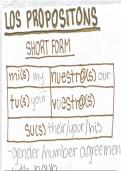 LOS PROPOSITONS
SHORT FORM
mi(s) my nuestr@(s) our
tu(s) your vuestr@(s)
su(s) their/your/his
-gender/number agreemen
with noun